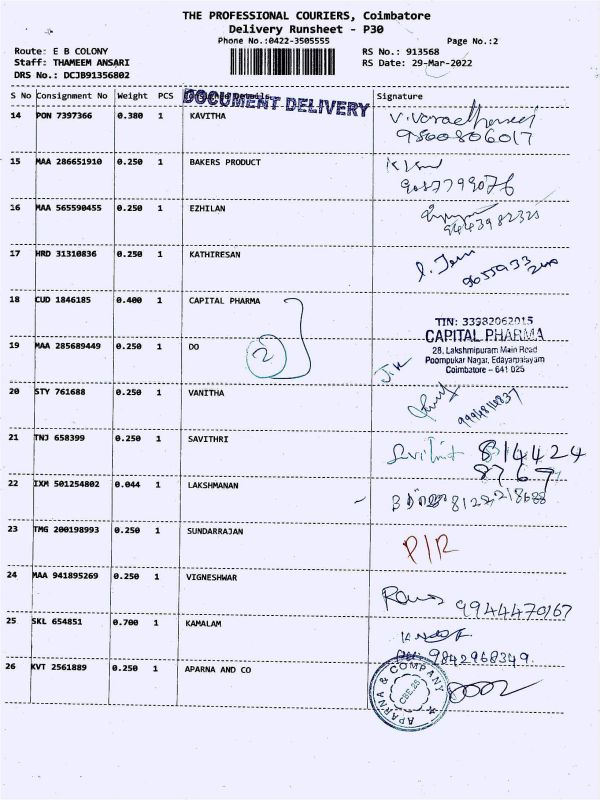 THE PROFESSIONAL COURIERS, Coimbatore
Delivery Runsheet - P30
Phone No.:0422-3505555
Page No.:2
Route: E B COLONY
RS No.: 913568
Staff: THAMEEM ANSARI
RS Date: 29-Mar-2022
DRS No.: DCJB91356802
S No Consignment No Weight PCS Signature
DOCUMENT DELIVERY
14 PON 7397366 0.380 1 KAVITHA
9500806017
15 MAA 286651910 0.250 1 BAKERS PRODUCT
16 MAA 565590455 0.250 1 EZHILAN
17 HRD 31310836 0.250 1 KATHIRESAN
18 CUD 1846185 0.400 1 CAPITAL PHARMA
TIN: 33982062015
CAPITAL PHARMA
28, Lakshmipuram Main Road
Poompukar Nagar, Edayarpalayam
Coimbatore - 641 025
19 MAA 285689449 0.250 1 DO 2
20 STY 761688 0.250 1 VANITHA
21 TNJ 658399 0.250 1 SAVITHRI
814424
8767
22 IXM 501254802 0.044 1 LAKSHMANAN
23 TMG 200198993 0.250 1 SUNDARRAJAN
P/R
24 MAA 941895269 0.250 1 VIGNESHWAR
9944470167
25 SKL 654851 0.700 1 KAMALAM
9842968349
26 KVT 2561889 0.250 1 APARNA AND CO
APARNA & COMPANY
CBE.25